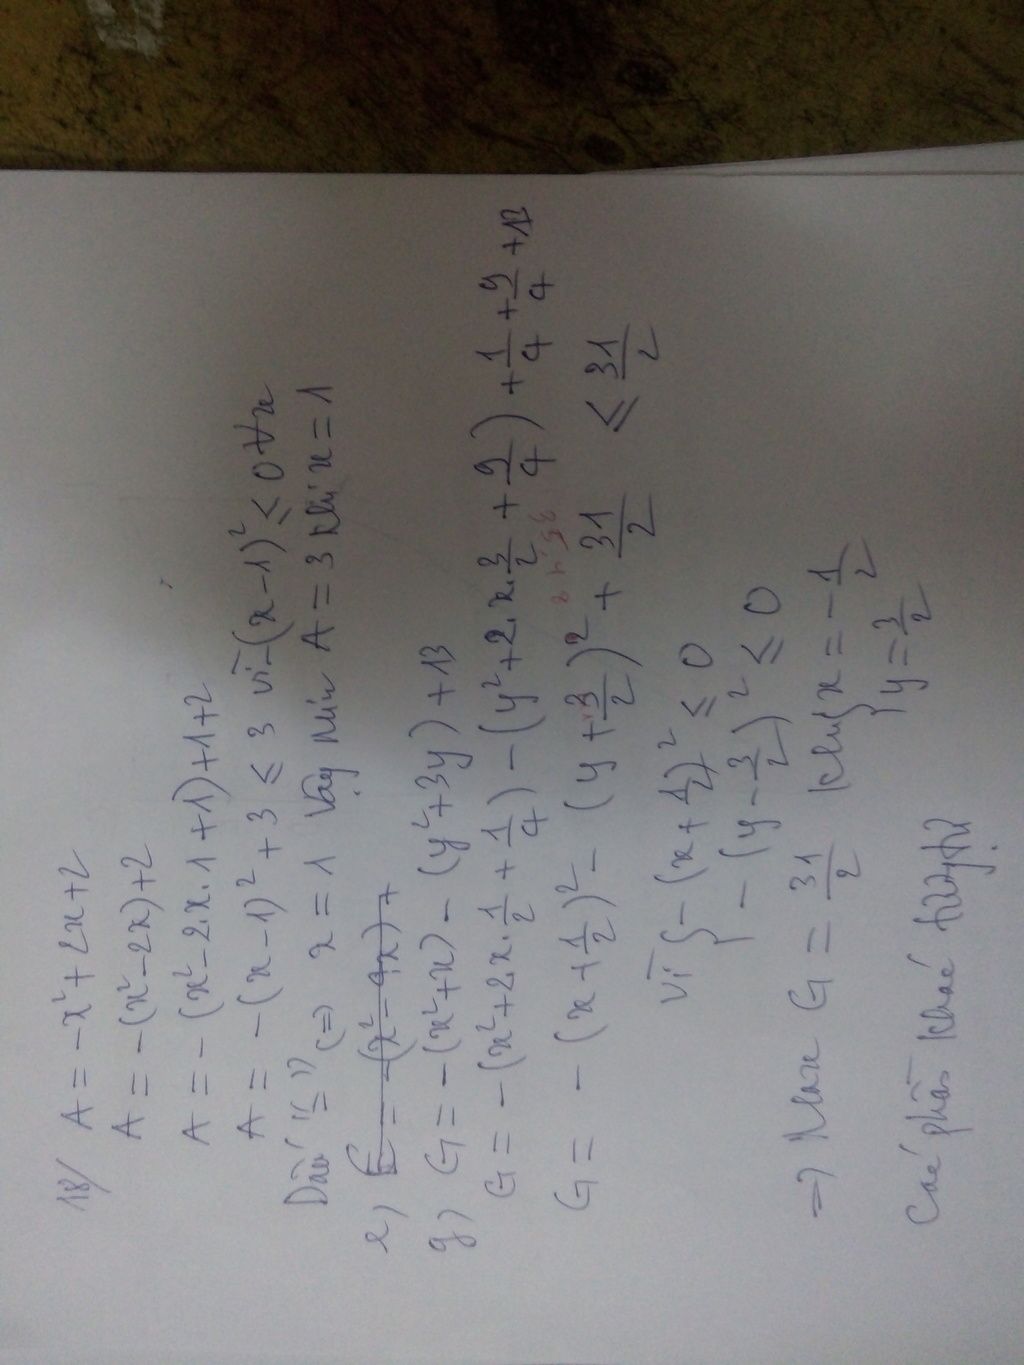 18/ A = -x² + 2x + 2
A = -(x² - 2x) + 2
A = -(x² - 2.x.1 + 1) + 1 + 2
A = -(x - 1)² + 3 ≤ 3 vì -(x - 1)² ≤ 0 ∀x
Dấu "=" (=) x = 1 Vậy Min A = 3 khi x = 1
e) E = -(x² - 4x) +
g) G = -(x² + x) - (y² + 3y) + 13
G = -(x² + 2.x.1/2 + 1/4) - (y² + 2.x.3/2 + 9/4) + 1/4 + 9/4 + 13
G = -(x + 1/2)² - (y + 3/2)² + 31/2 ≤ 31/2
vì { -(x + 1/2)² ≤ 0
-(y - 3/2)² ≤ 0
=> Max G = 31/2 khi { x = -1/2
y = 3/2
Các phần khác